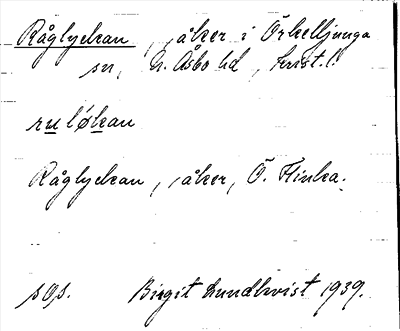 Råglyckan, åker i Örkelljunga
sn, N. Åsbo hd, Krist. l.
ruløkan
Råglyckan, åker, Ö. Flinka.
sOs. Birgit Lundkvist 1939.